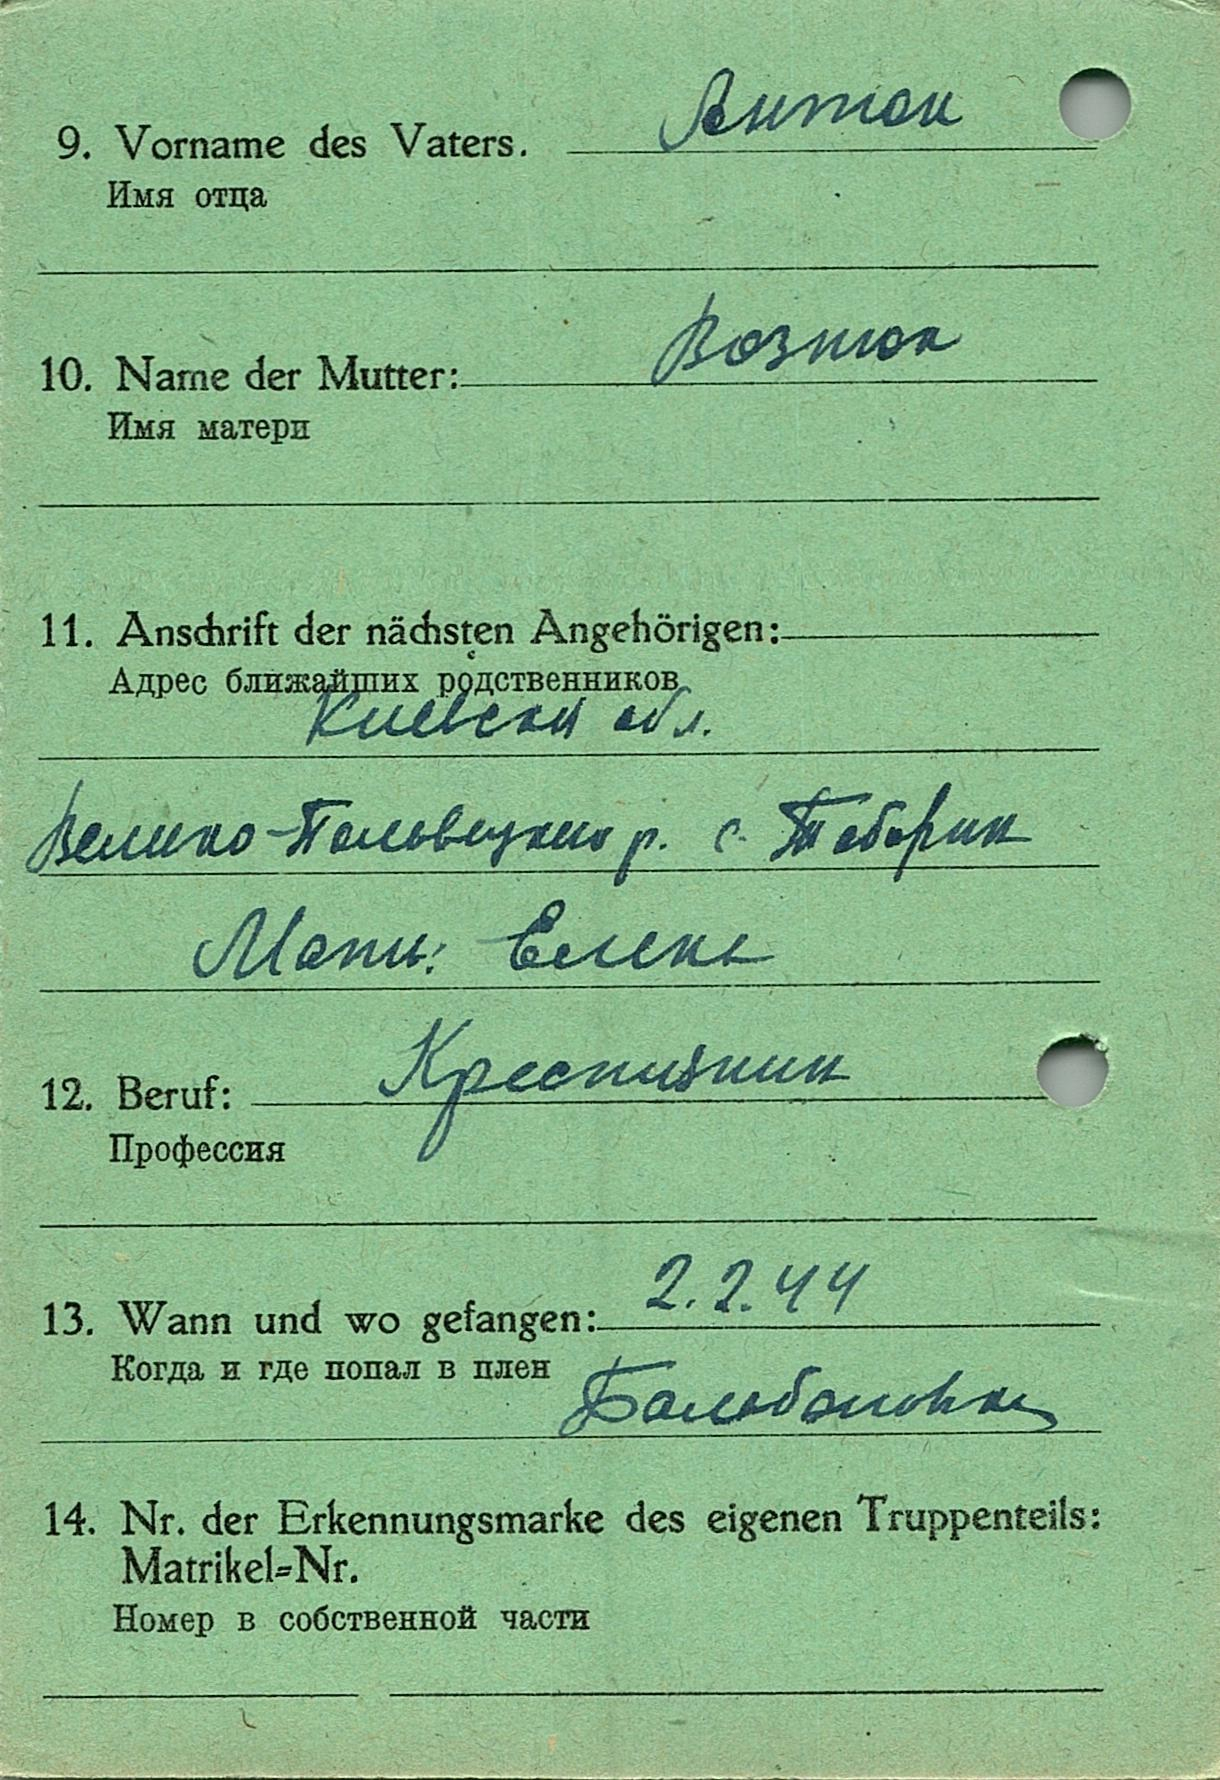 9. Vorname des Vaters. Антон
Имя отца
10. Name der Mutter: Вознюк
Имя матери
11. Anschrift der nächsten Angehörigen:
Адрес ближайших родственников
Киевской обл.
Велико-Половецкого р. с.
Мать: Елена
12. Beruf: Крестьянин
Профессия
13. Wann und wo gefangen: 2.2.44
Когда и где попал в плен
Балабановка
14. Nr. der Erkennungsmarke des eigenen Truppenteils:
Matrikel=Nr.
Номер в собственной части